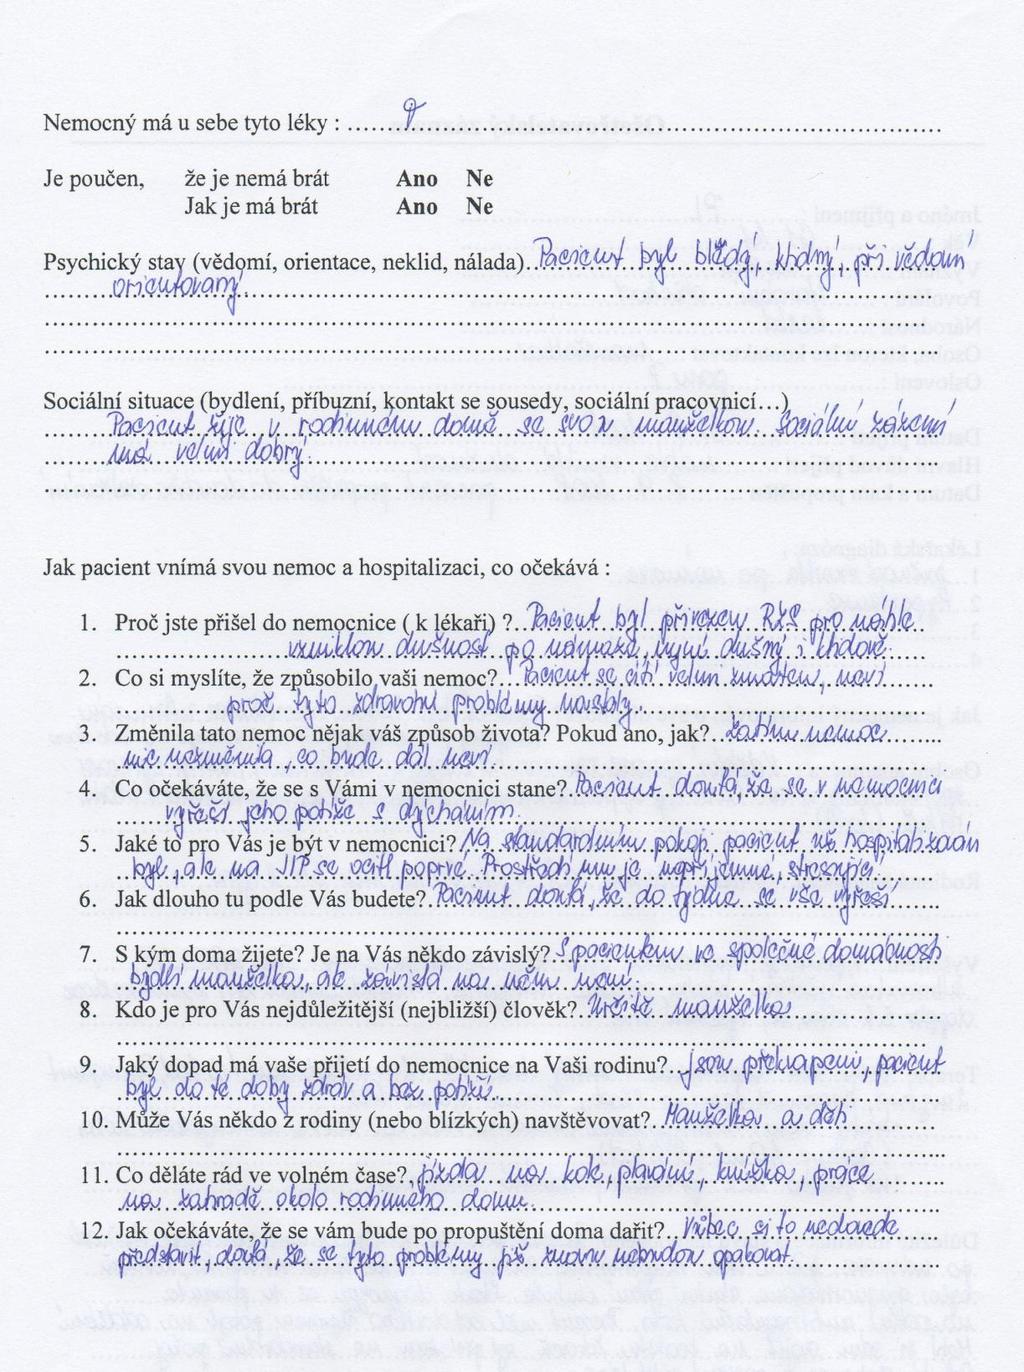 Nemocný má u sebe tyto léky : .....
Je poučen, že je nemá brát Ano Ne
Jak je má brát Ano Ne
Psychický stav (vědomí, orientace, neklid, nálada) Pacient byl bledý, klidný, při vědomí
orientovaný
Sociální situace (bydlení, příbuzní, kontakt se sousedy, sociální pracovnicí…)
Pacient žije v rodinném domě se svou manželkou. Sociální zázemí
má velmi dobrý.
Jak pacient vnímá svou nemoc a hospitalizaci, co očekává :
1. Proč jste přišel do nemocnice ( k lékaři) ? Pacient byl přivezen RZS pro náhle
vzniklou dušnost po námaze, nyní dušný i klidově.
2. Co si myslíte, že způsobilo vaši nemoc? Pacient se cítí velmi zmateně, neví
proč tyto zdravotní problémy nastaly.
3. Změnila tato nemoc nějak váš způsob života? Pokud ano, jak? Zatím nemoc
nic nezměnila, co bude dál neví.
4. Co očekáváte, že se s Vámi v nemocnici stane? Pacient doufá, že se v nemocnici
vyřeší jeho potíže s dýcháním.
5. Jaké to pro Vás je být v nemocnici? Na standardním pokoji pacient už hospitalizován
byl, ale na JIP se ocitl poprvé. Prostředí mu je nepříjemné, stresující.
6. Jak dlouho tu podle Vás budete? Pacient doufá, že do týdne se vše vyřeší
7. S kým doma žijete? Je na Vás někdo závislý? S pacientem ve společné domácnosti
bydlí manželka, ale závislá na něm není.
8. Kdo je pro Vás nejdůležitější (nejbližší) člověk? Určitě manželka
9. Jaký dopad má vaše přijetí do nemocnice na Vaši rodinu? Jsou překvapeni, pacient
byl do té doby zdráv a bez potíží.
10. Může Vás někdo z rodiny (nebo blízkých) navštěvovat? Manželka a děti
11. Co děláte rád ve volném čase? jízda na kole, plavání, knížka, práce
na zahradě okolo rodinného domu.
12. Jak očekáváte, že se vám bude po propuštění doma dařit? Vůbec si to nedovede
představit, doufá, že se tyto problémy již znovu nebudou opakovat.